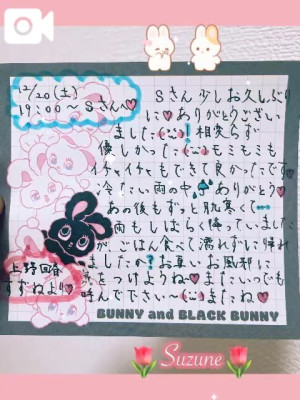 12/20(土)
19:00〜Sさんへ♥
Sさん少しお久しぶり
に♥ありがとうござい
ました(¨)!相変らず
優しかった(¨)モミモミも
イチャイチャもできて良かったです♥
冷たい雨の中☔ありがとう♥
あの後もずっと肌寒くて…
雨もしばらく降っていました
が、ごはん食べて濡れずに帰れ
ましたか?お互いお風邪に
気をつけようね〜♥またいつでも
呼んで下さい〜(¨)またね♥
上野回春
すずねより♥
BUNNY and BLACK BUNNY
Suzune